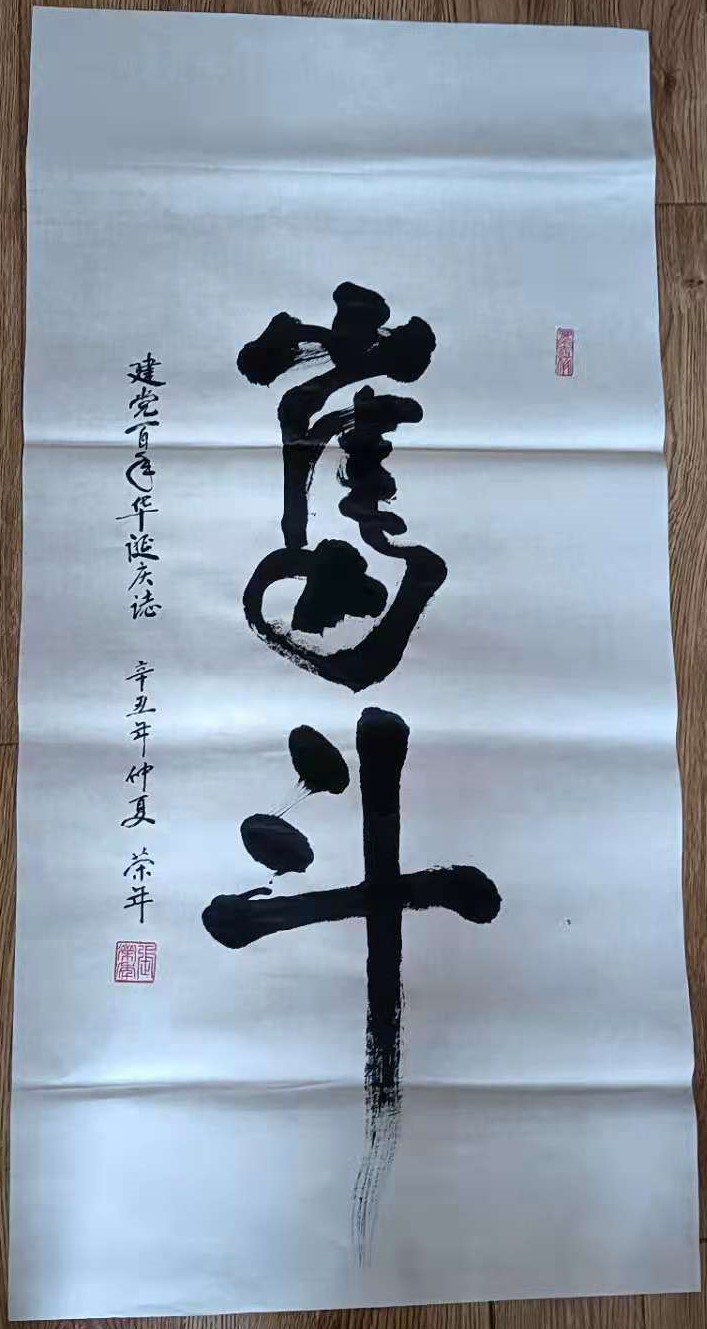 奮斗
建党百年华诞庆誌 辛丑年仲夏 荣年